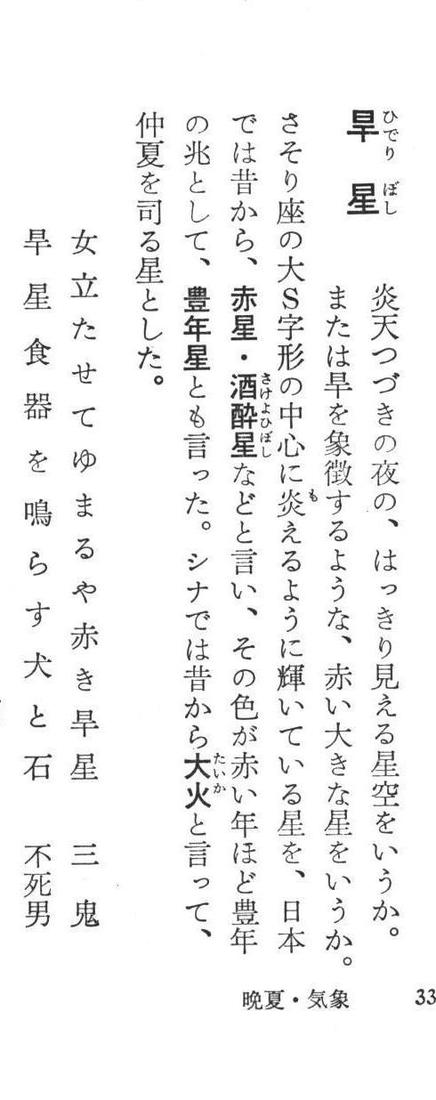 旱星
ひでりぼし
炎天つづきの夜の、はっきり見える星空をいうか。
または旱を象徴するような、赤い大きな星をいうか。
さそり座の大S字形の中心に炎えるように輝いている星を、日本
では昔から、赤星・酒酔星などと言い、その色が赤い年ほど豊年
の兆として、豊年星とも言った。シナでは昔から大火と言って、
仲夏を司る星とした。
女立たせてゆまるや赤き旱星 三鬼
旱星食器を鳴らす犬と石 不死男
晩夏・気象 33